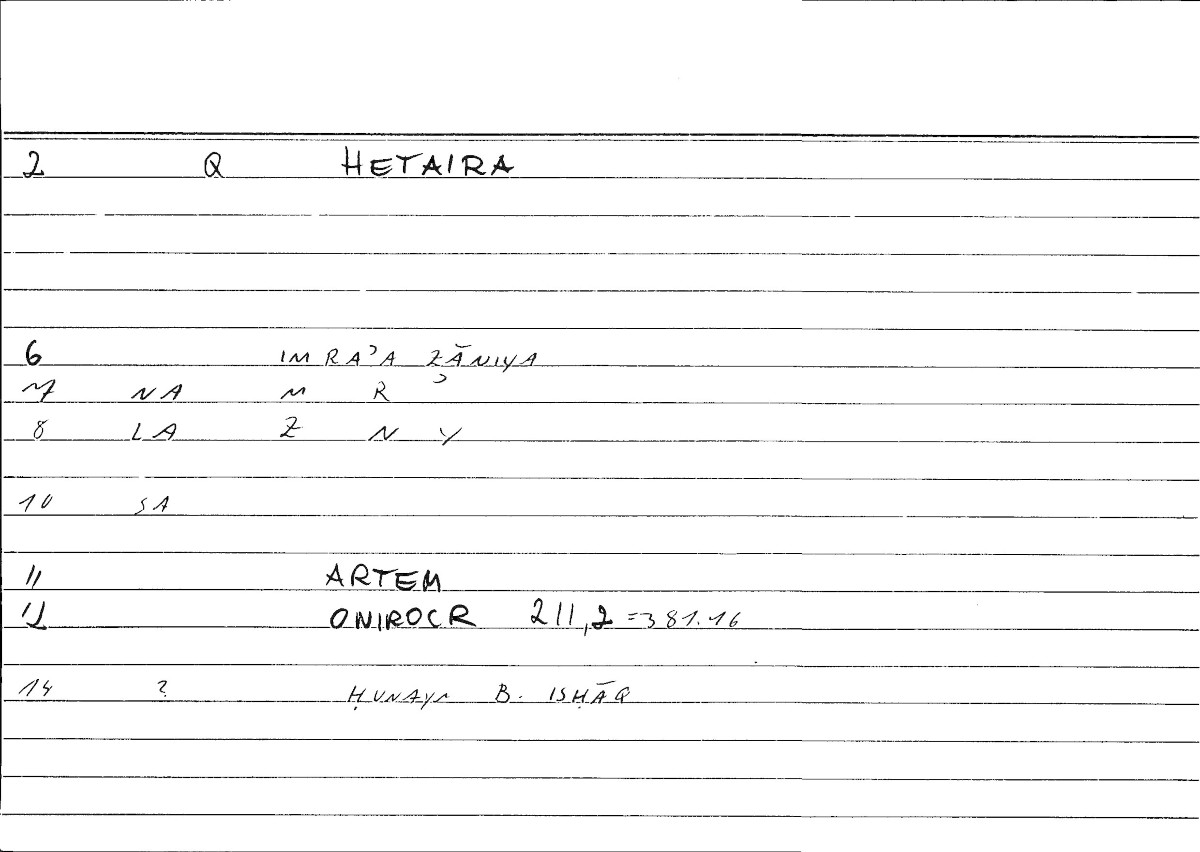 2 Q HETAIRA
6 IMRAʾA ZĀNIYA
7 NA M R ʾ
8 LA Z N Y
10 SA
11 ARTEM
12 ONIROCR 211,2 =381.16
14 ? ḤUNAYN B. ISḤĀQ